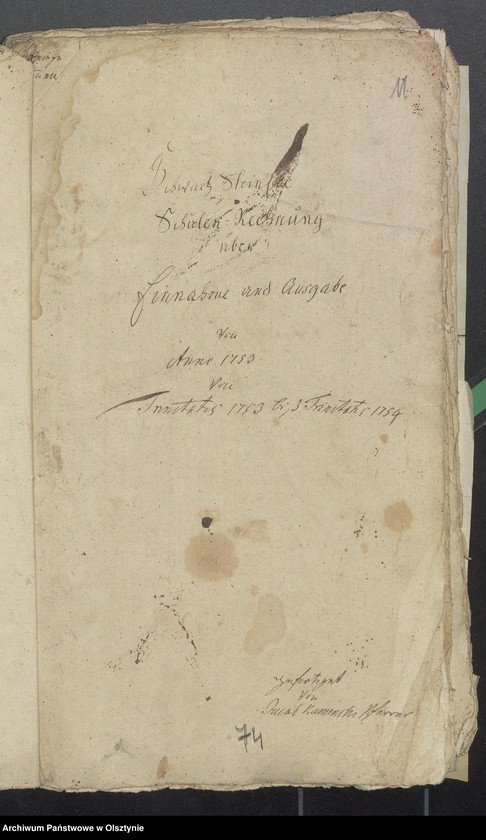 11
Schwartz Steinsche
Schulen-Rechnung
über
Einnahme und Ausgabe
von
Anno 1753
von
Trinitatis 1753 bis Trinitatis 1754
gefertiget
von
Jacob Pfarrer
74
Archiwum Państwowe w Olsztynie